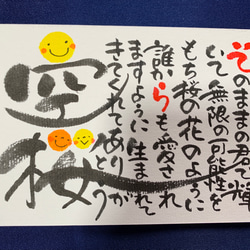 そのままの君で光
いて無限の可能性を
もち桜の花のように
誰からも愛され
ますように生まれて
きてくれてありがとう
空桜